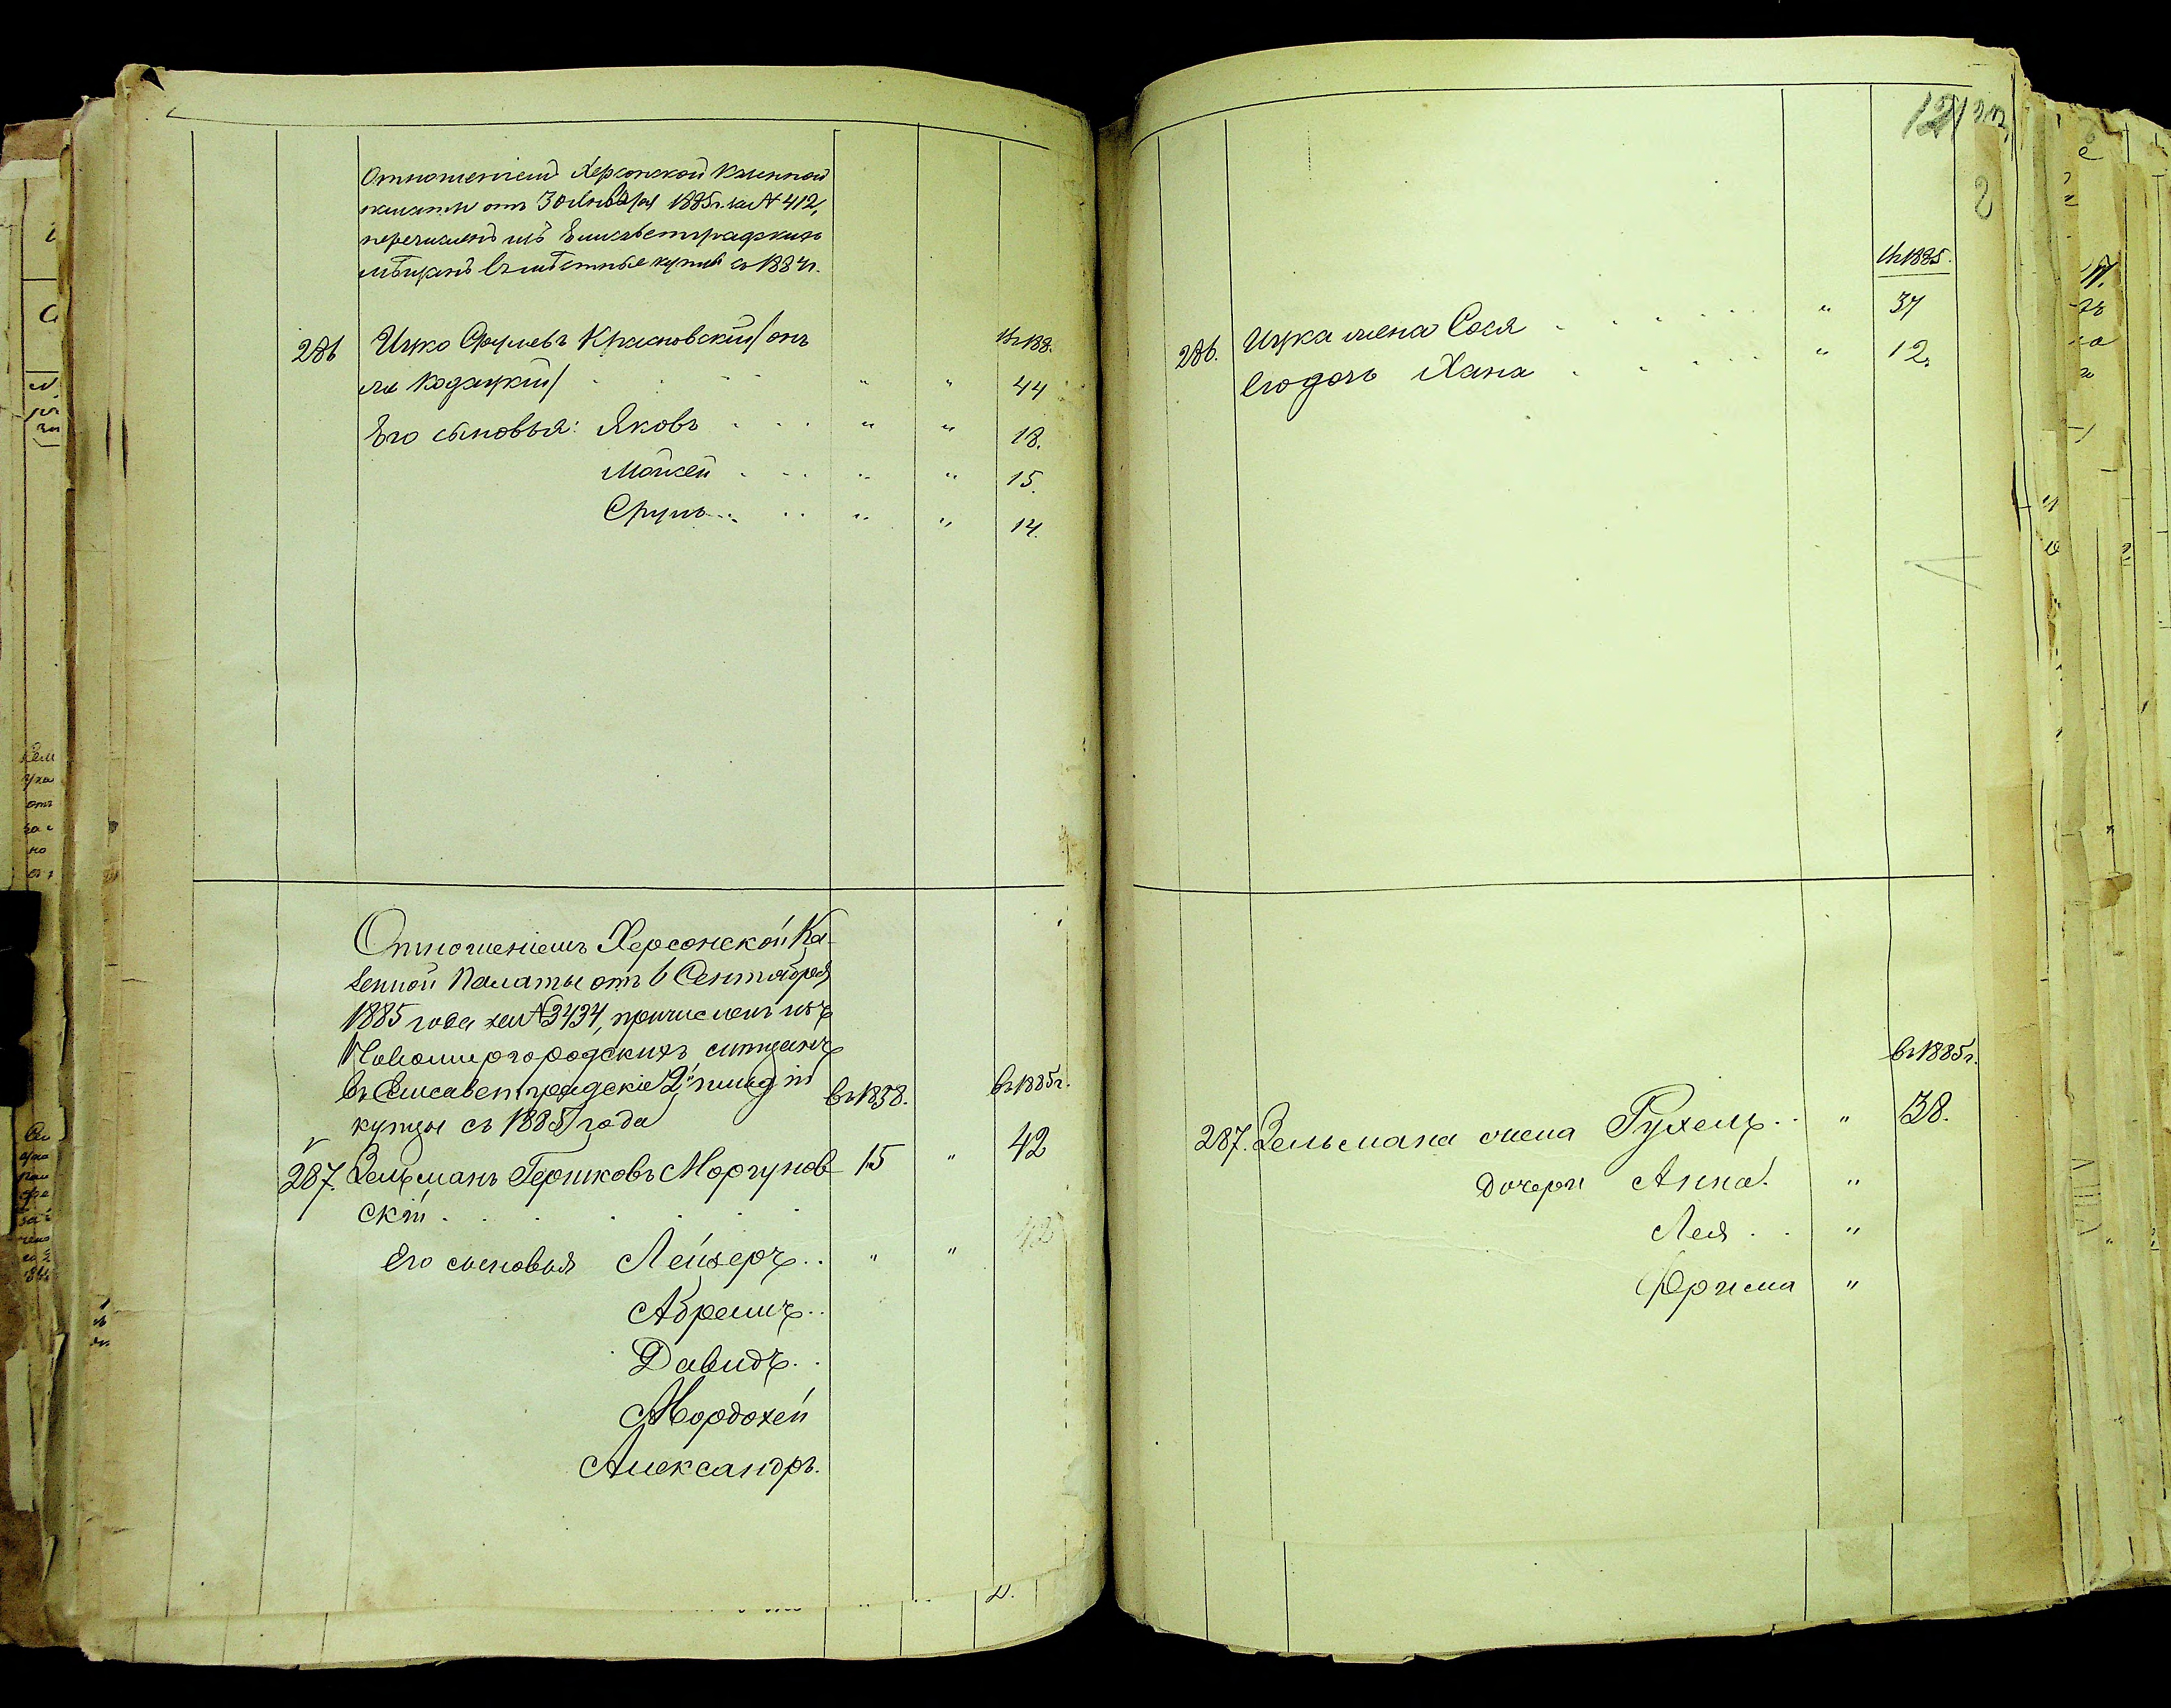 Отношеніемъ Херсонской Казенной
палаты отъ 30 Января 1885 г. за № 412,
перечисленъ изъ Елисаветградскихъ
мѣщанъ въ мѣстные купцы съ 1884 г.
286 Ицко Срулевъ Красновскій /онъ
въ 188
же Кодацкій/ " " 44
Его сыновья: Яковъ " " 18.
Мойсей " " 15.
Сруль " " 14.
Отношеніемъ Херсонской Ка-
зенной Палаты отъ 6 Сентября
1885 года за № 3434, причисленъ изъ
Новомиргородскихъ мѣщанъ
въ Елисаветградскіе 2й гильдіи
въ 1858. въ 1885 г.
купцы съ 1885 года
287. Зельманъ Гершковъ Моргунов- 15 " 42
скій
Его сыновья Лейзеръ " " 42
Абрамъ
Давидъ
Мордохей
Александръ.
121
въ 1885.
286. Ицка жена Сося " 37
Его дочь Хана " 12
въ 1885 г.
287. Зельмана жена Рухель " 38.
Дочери Анна "
Лея "
Фрима "